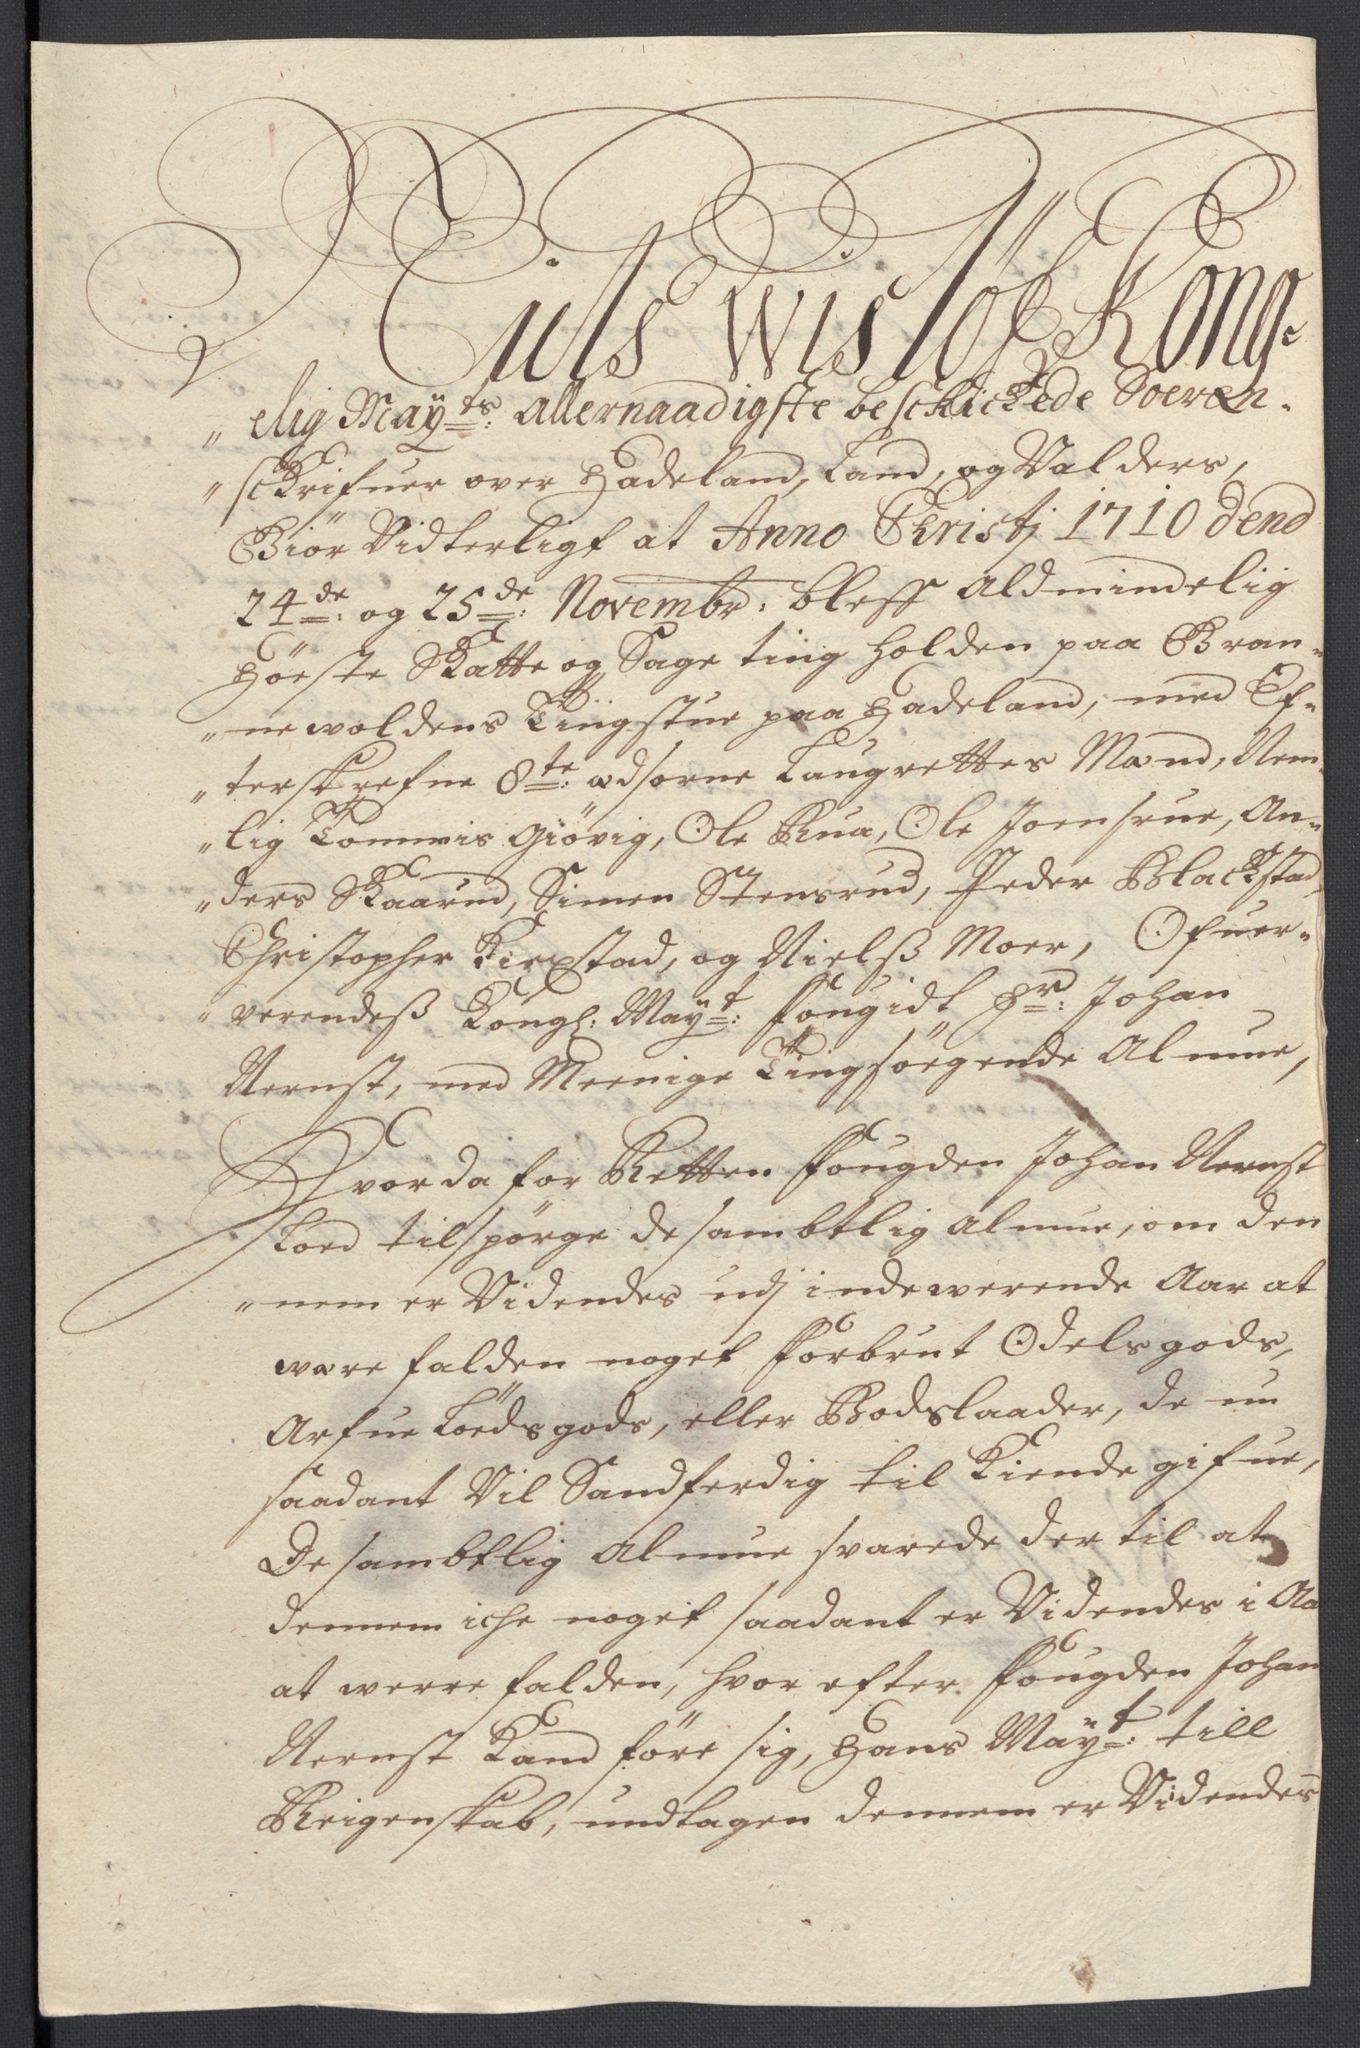 Niels Wisløf Kong-
"elig Maÿts: allernaadigste beschickede Soeren-
"schrifuer over Hadeland, Land, og Valders,
Giör Vidterligt at Anno Christj 1710 dend
24de: og 25de: Novembr: bleff aldmindelig
Höeste Skatte og Sage ting holden paa Bran-
"newoldens Tingstue paa Hadeland, med Ef-
"terskrefne 8te: edsorne Laugrettes Mænd, Nem-
"lig Tommis Giövig, Ole Rua, Ole Joensrue, An-
"ders Skaarud, Simen Stensrud, Peder Blackstad,
Christopher Kirstad, og Nielß Moer, Ofuer-
"verendeß Kongl: Maÿt: Fougidt Hr: Johan
Nernst, med Meenige Tingsöegende Almue,
Hvor da for Retten Fougden Johan Nernst
loed tilspörge de sambtlig almue, om den
"nem er Videndes udj indeværende Aar at
være falden noget Forbrut Odelsgods,
Arfue löedsgods, eller Bødslaader, de nu
saadant Vil Sandferdig til Kiende gifue,
De sambtlig almue svarede der til at
dennem iche noget saadant er Videndes i Aa
at verre falden, hvor efter Fougden Johan
Nernst Kand före sig, Hans Maÿt: till
Reigenskab, undtagen dennem er Videndes